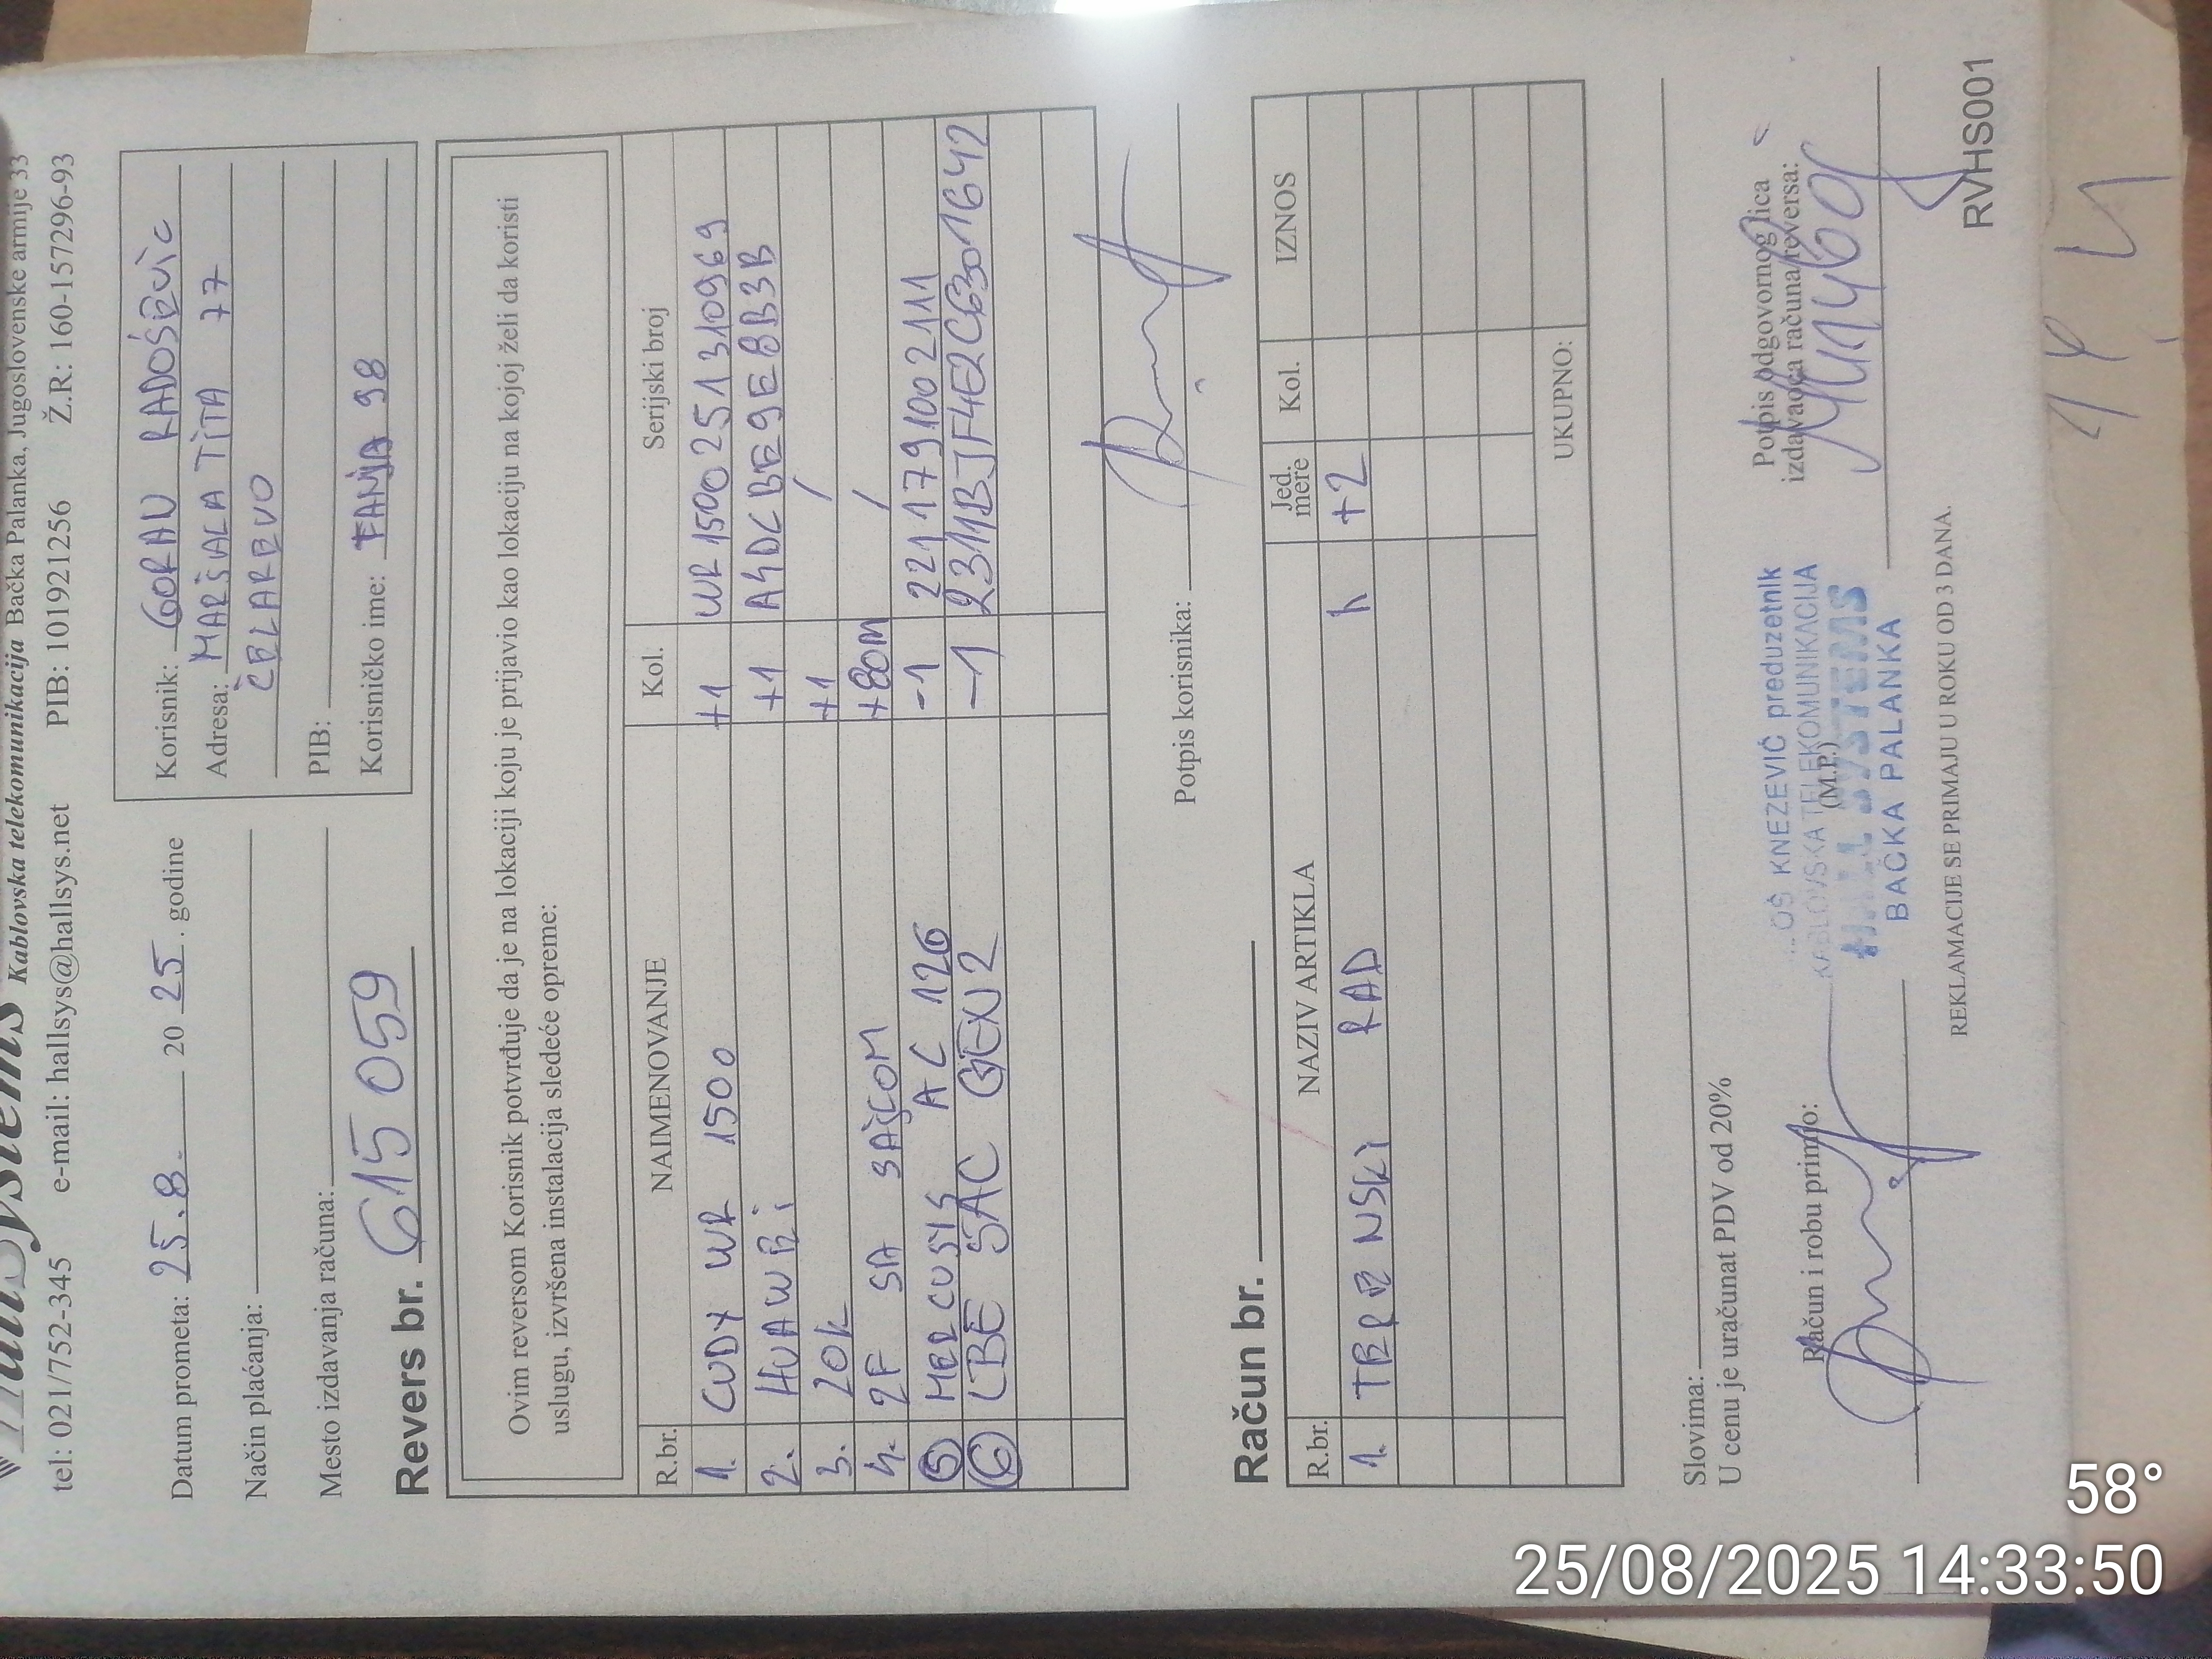 HallSystems Kablovska telekomunikacija Bačka Palanka, Jugoslovenske armije 33
tel: 021/752-345 e-mail: hallsys@hallsys.net PIB: 101921256 Ž.R: 160-157296-93
Datum prometa: 25.8. 2025. godine
Način plaćanja:
Mesto izdavanja računa:
Korisnik: GORAN RADOŠEVIĆ
Adresa: MARŠALA TITA 77
ČELAREVO
PIB:
Korisničko ime: TANJA 98
Revers br. 615 059
Ovim reversom Korisnik potvrđuje da je na lokaciji koju je prijavio kao lokaciju na kojoj želi da koristi
uslugu, izvršena instalacija sledeće opreme:
R.br. NAIMENOVANJE Kol. Serijski broj
1. CUDY WR 1500 +1 WR1500251310969
2. HUAWEi +1 A4DCBE9E8B3B
3. 20k +1 /
4. 2F SA SAJLOM +80m /
5 MERCUSYS AC 12G -1 2211791002111
6 LBE 5AC GEN2 -1 2311BJF4E2C6301642
Potpis korisnika:
Račun br.
R.br. NAZIV ARTIKLA Jed. mere Kol. IZNOS
1. TERENSKI RAD h +2
UKUPNO:
Slovima:
U cenu je uračunat PDV od 20%
Račun i robu primio:
(M.P.)
Potpis odgovornog lica
izdavaoca računa/reversa:
OŠ KNEZEVIĆ preduzetnik
KABLOVSKA TELEKOMUNIKACIJA
HALL SYSTEMS
BAČKA PALANKA
REKLAMACIJE SE PRIMAJU U ROKU OD 3 DANA.
RVHS001
58°
25/08/2025 14:33:50